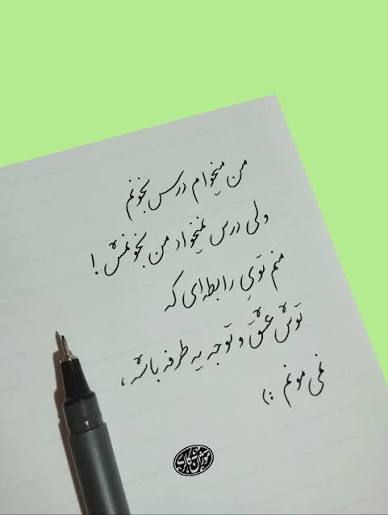 من میخوام درس بخونم
ولی درس نمیخواد من بخونمش!
منم توی رابطه‌ای که
توش عشق و توجه یه طرفه باشه،
نمی مونم :)